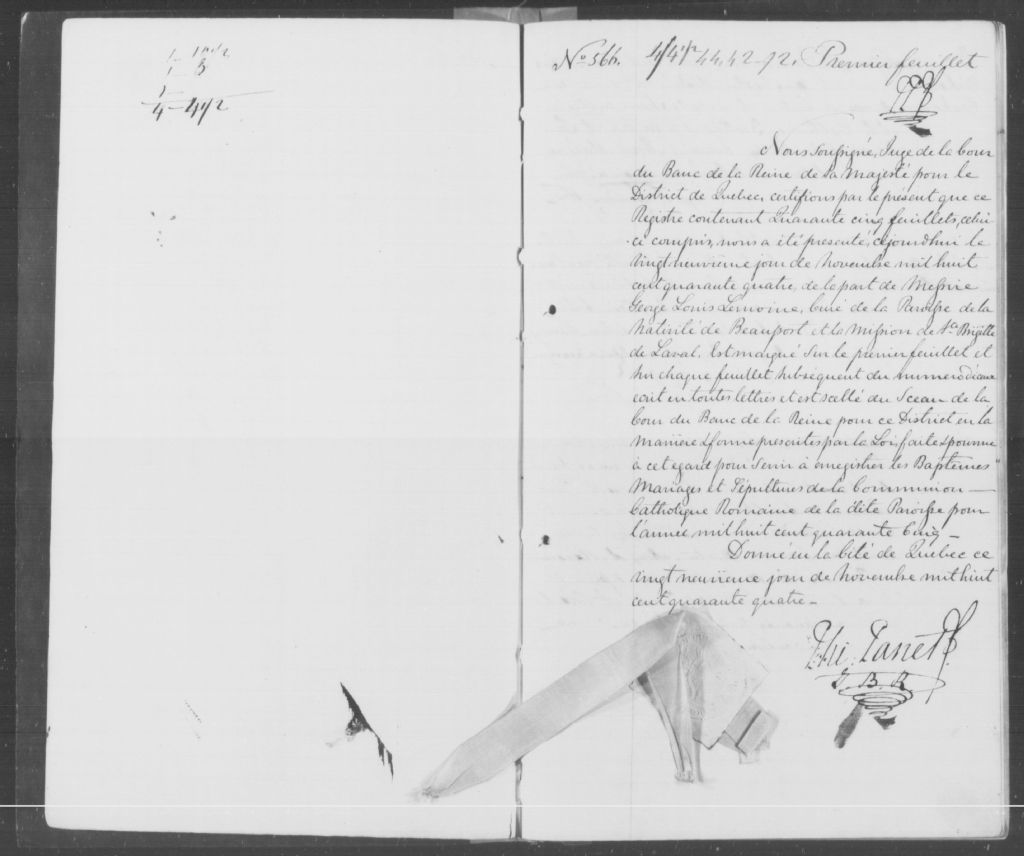 1 – 10 1/2
1 – 3
1 –
4 – 4 1/2
No. 566. 4/4 1/2 44.42–72. Premier feuillet
Nous soussigné, Juge de la Cour
du Banc de la Reine de Sa Majesté pour le
District de Quebec, certifions par le présent que ce
Registre contenant Quarante cinq feuillets, celui
-ci compris, nous a été presenté, cejourdhui le
vingt neuvième jour de Novembre mil huit
cent quarante quatre, de la part de Messire
George Louis Lemoine, Curé de la Paroisse de la
Nativité de Beauport et la Mission de Ste. Brigitte
de Laval. Est marqué Sur le premier feuillet et
sur chaque feuillet subséquent du numero
écrit en toutes lettres et est scellé du Sceau de la
Cour du Banc de la Reine pour ce District en la
Manière & forme prescrites par la Loi, faite & pourvue
à cet egard pour servir à enregistrer les Baptêmes
Mariages et Sépultures de la Communion —
Catholique Romaine de la dite Paroisse pour
l'année mil huit cent quarante Cinq –
Donné en la Cité de Quebec ce
vingt neuvieme jour de Novembre mil huit
cent quarante quatre –
Phi. Panet
J. B. R